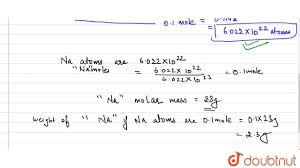 0.1 mole = 0.1NA
6.022×10²² atoms
Na atoms are 6.022×10²²
"Na" moles = 6.022×10²² / 6.022×10²³ = 0.1 mole
"Na" molar mass = 23g
weight of "Na" if Na atoms are 0.1 mole = 0.1×23g
= 2.3g
doubtnut